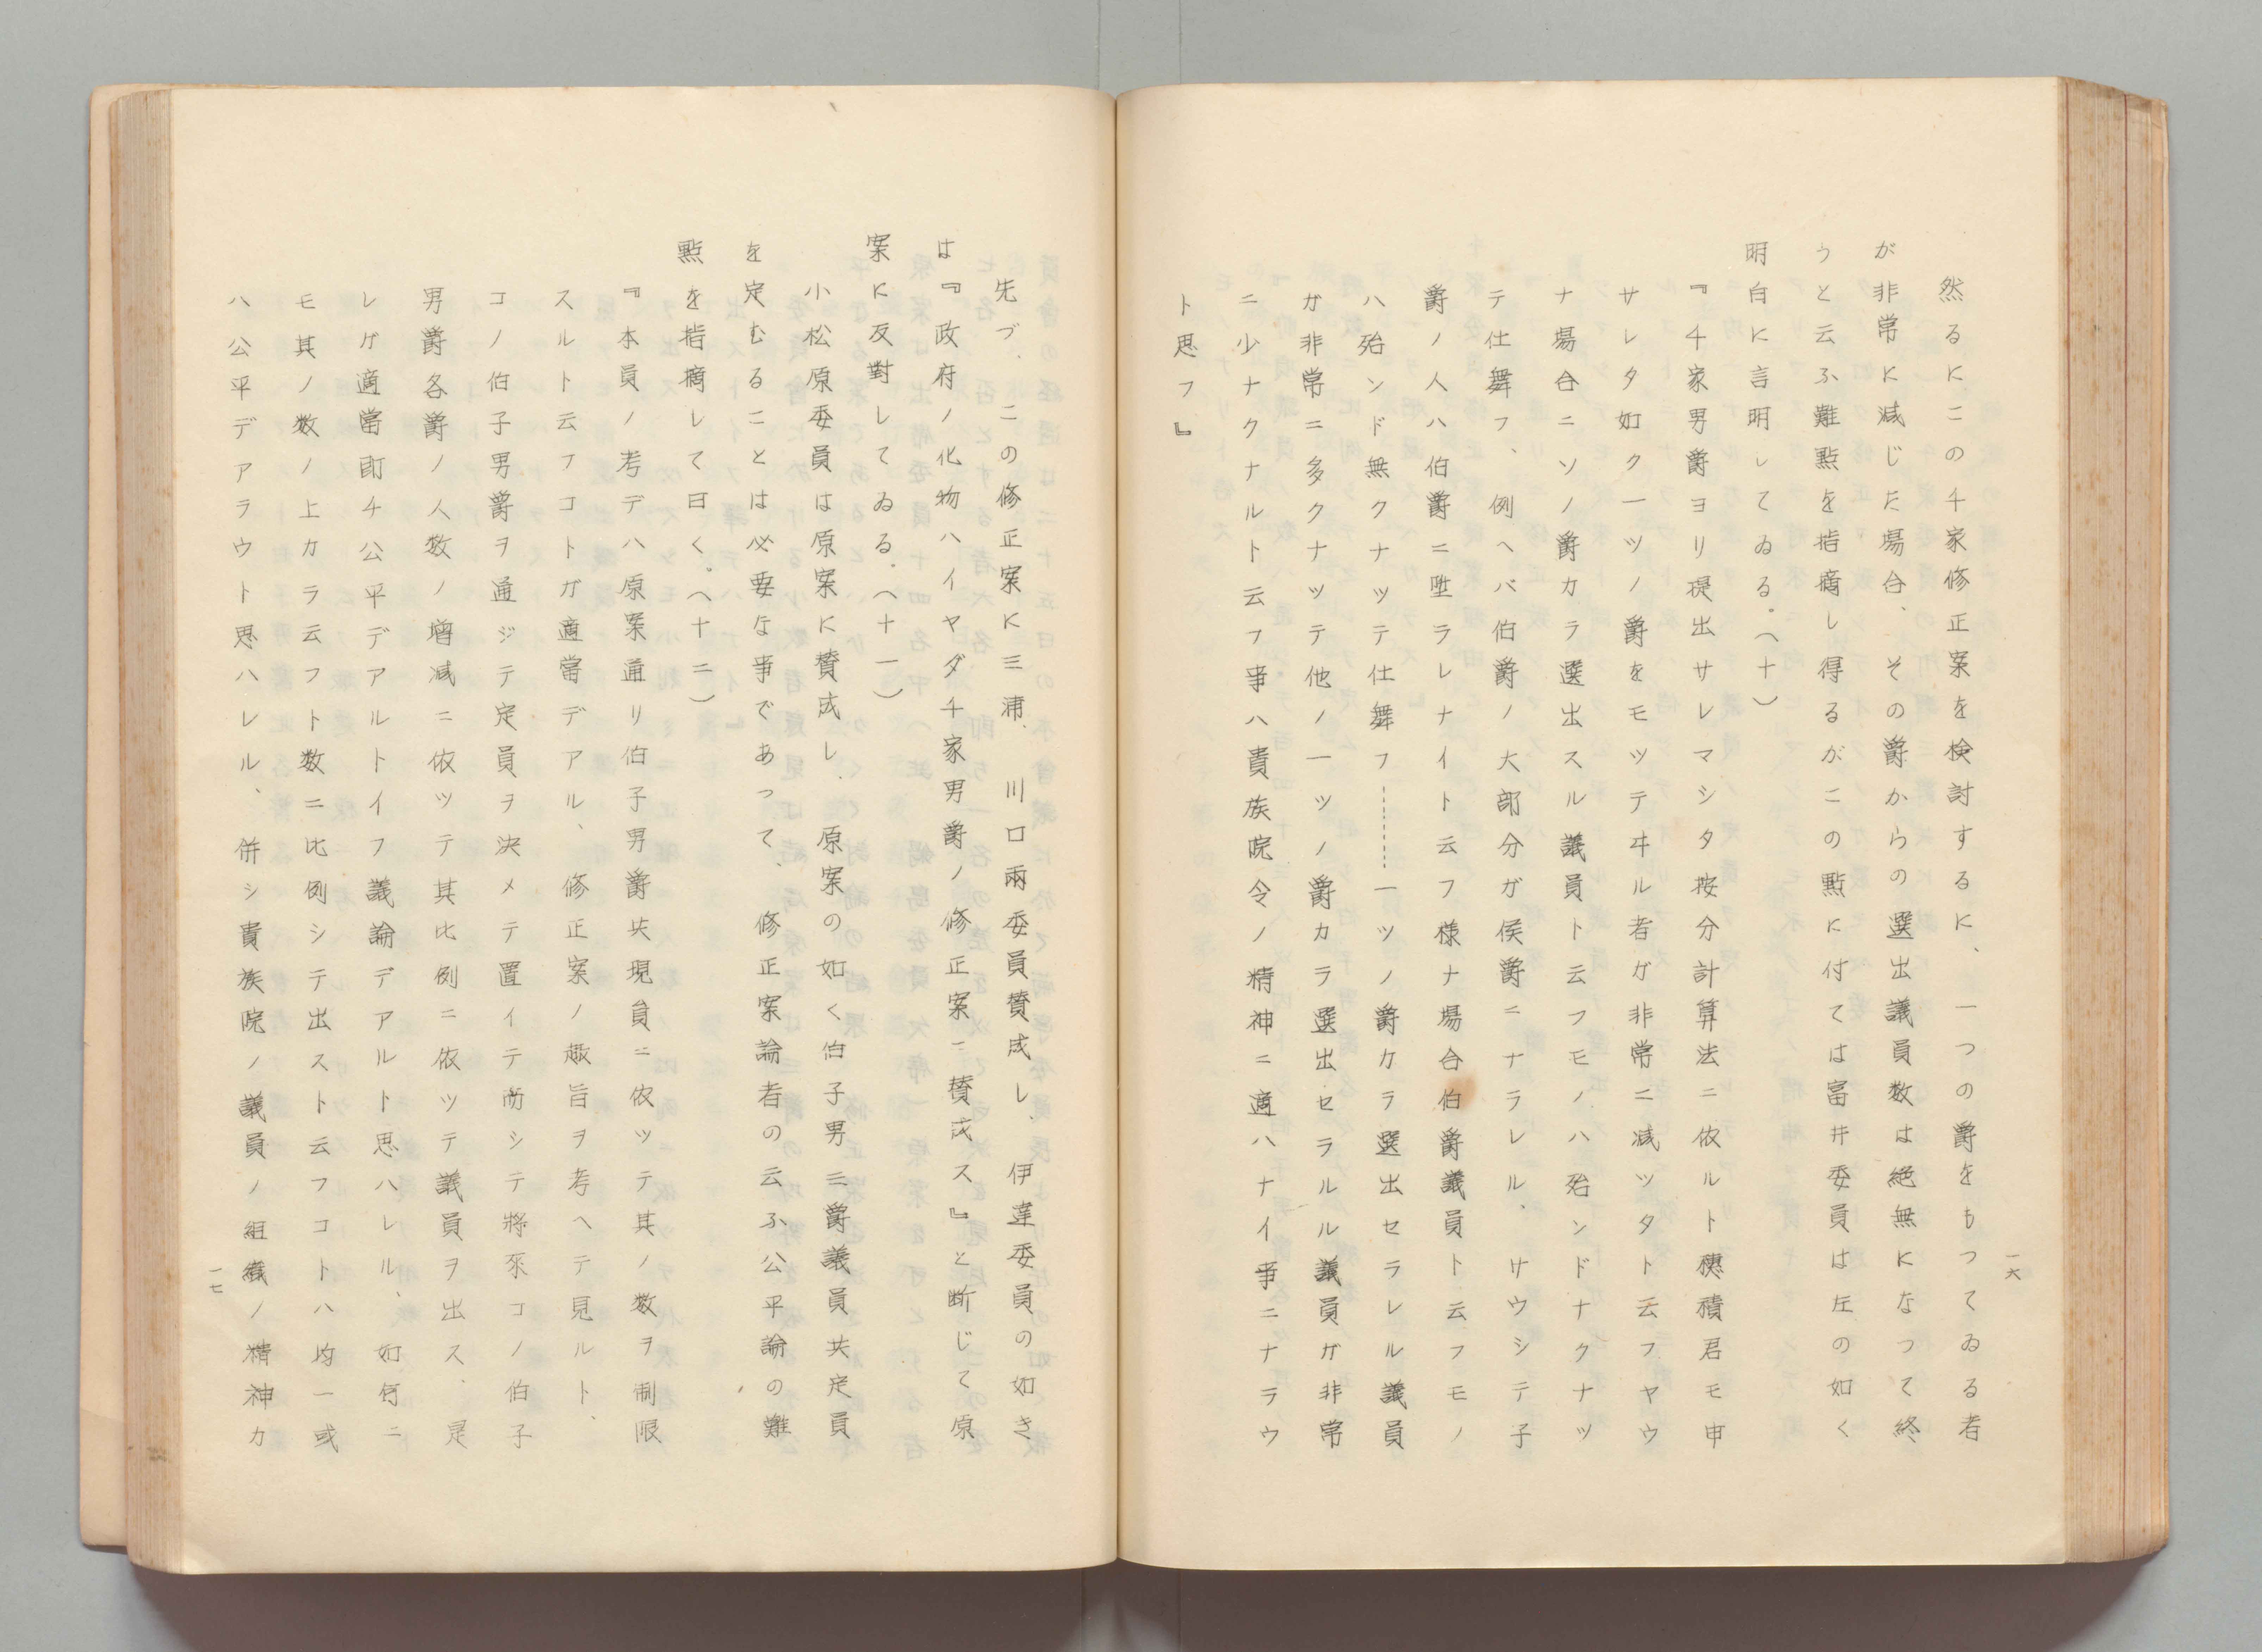 一六
然るに、この千家修正案を検討するに、一つの爵をもつてゐる者
が非常に減じた場合、その爵からの選出議員数は絶無になつて終
うと云ふ難點を指摘し得るがこの點に付ては富井委員は左の如く
明白に言明してゐる。（十）
『千家男爵ヨリ提出サレマシタ按分計算法ニ依ルト穂積君モ申
サレタ如ク一ツノ爵をモツテヰル者ガ非常ニ減ツタト云フヤウ
ナ場合ニソノ爵カラ選出スル議員ト云フモノハ殆ンドナクナツ
テ仕舞フ、例ヘバ伯爵ノ大部分ガ侯爵ニナラレル、サウシテ子
爵ノ人ハ伯爵ニ陞ラレナイト云フ様ナ場合伯爵議員ト云フモノ
ハ殆ンド無クナツテ仕舞フ………一ツノ爵カラ選出セラレル議員
ガ非常ニ多クナツテ他ノ一ツノ爵カラ選出セラルル議員ガ非常
ニ少ナクナルト云フ事ハ貴族院令ノ精神ニ適ハナイ事ニナラウ
ト思フ』
先づ、この修正案に三浦、川口兩委員賛成し、伊達委員の如き
は『政府ノ化物ハイヤダ千家男爵ノ修正案ニ賛成ス』と断じて原
案に反對してゐる。（十一）
小松原委員は原案に賛成し、原案の如く伯子男三爵議員共定員
を定むることは必要な事であつて、修正案論者の云ふ公平論の難
點を指摘して曰く。（十二）
『本員ノ考デハ原案通リ伯子男爵共現員ニ依ツテ其ノ数ヲ制限
スルト云フコトガ適當デアル、修正案ノ趣旨ヲ考ヘテ見ルト、
コノ伯子男爵ヲ通ジテ定員ヲ決メテ置イテ而シテ將來コノ伯子
男爵各爵ノ人数ノ増減ニ依ツテ其比例ニ依ツテ議員ヲ出ス、是
レガ適當即チ公平デアルトイフ議論デアルト思ハレル、如何ニ
モ其ノ数ノ上カラ云フト数ニ比例シテ出スト云フコトハ均一或
ハ公平デアラウト思ハレル、併シ貴族院ノ議員ノ組織ノ精神カ
一七